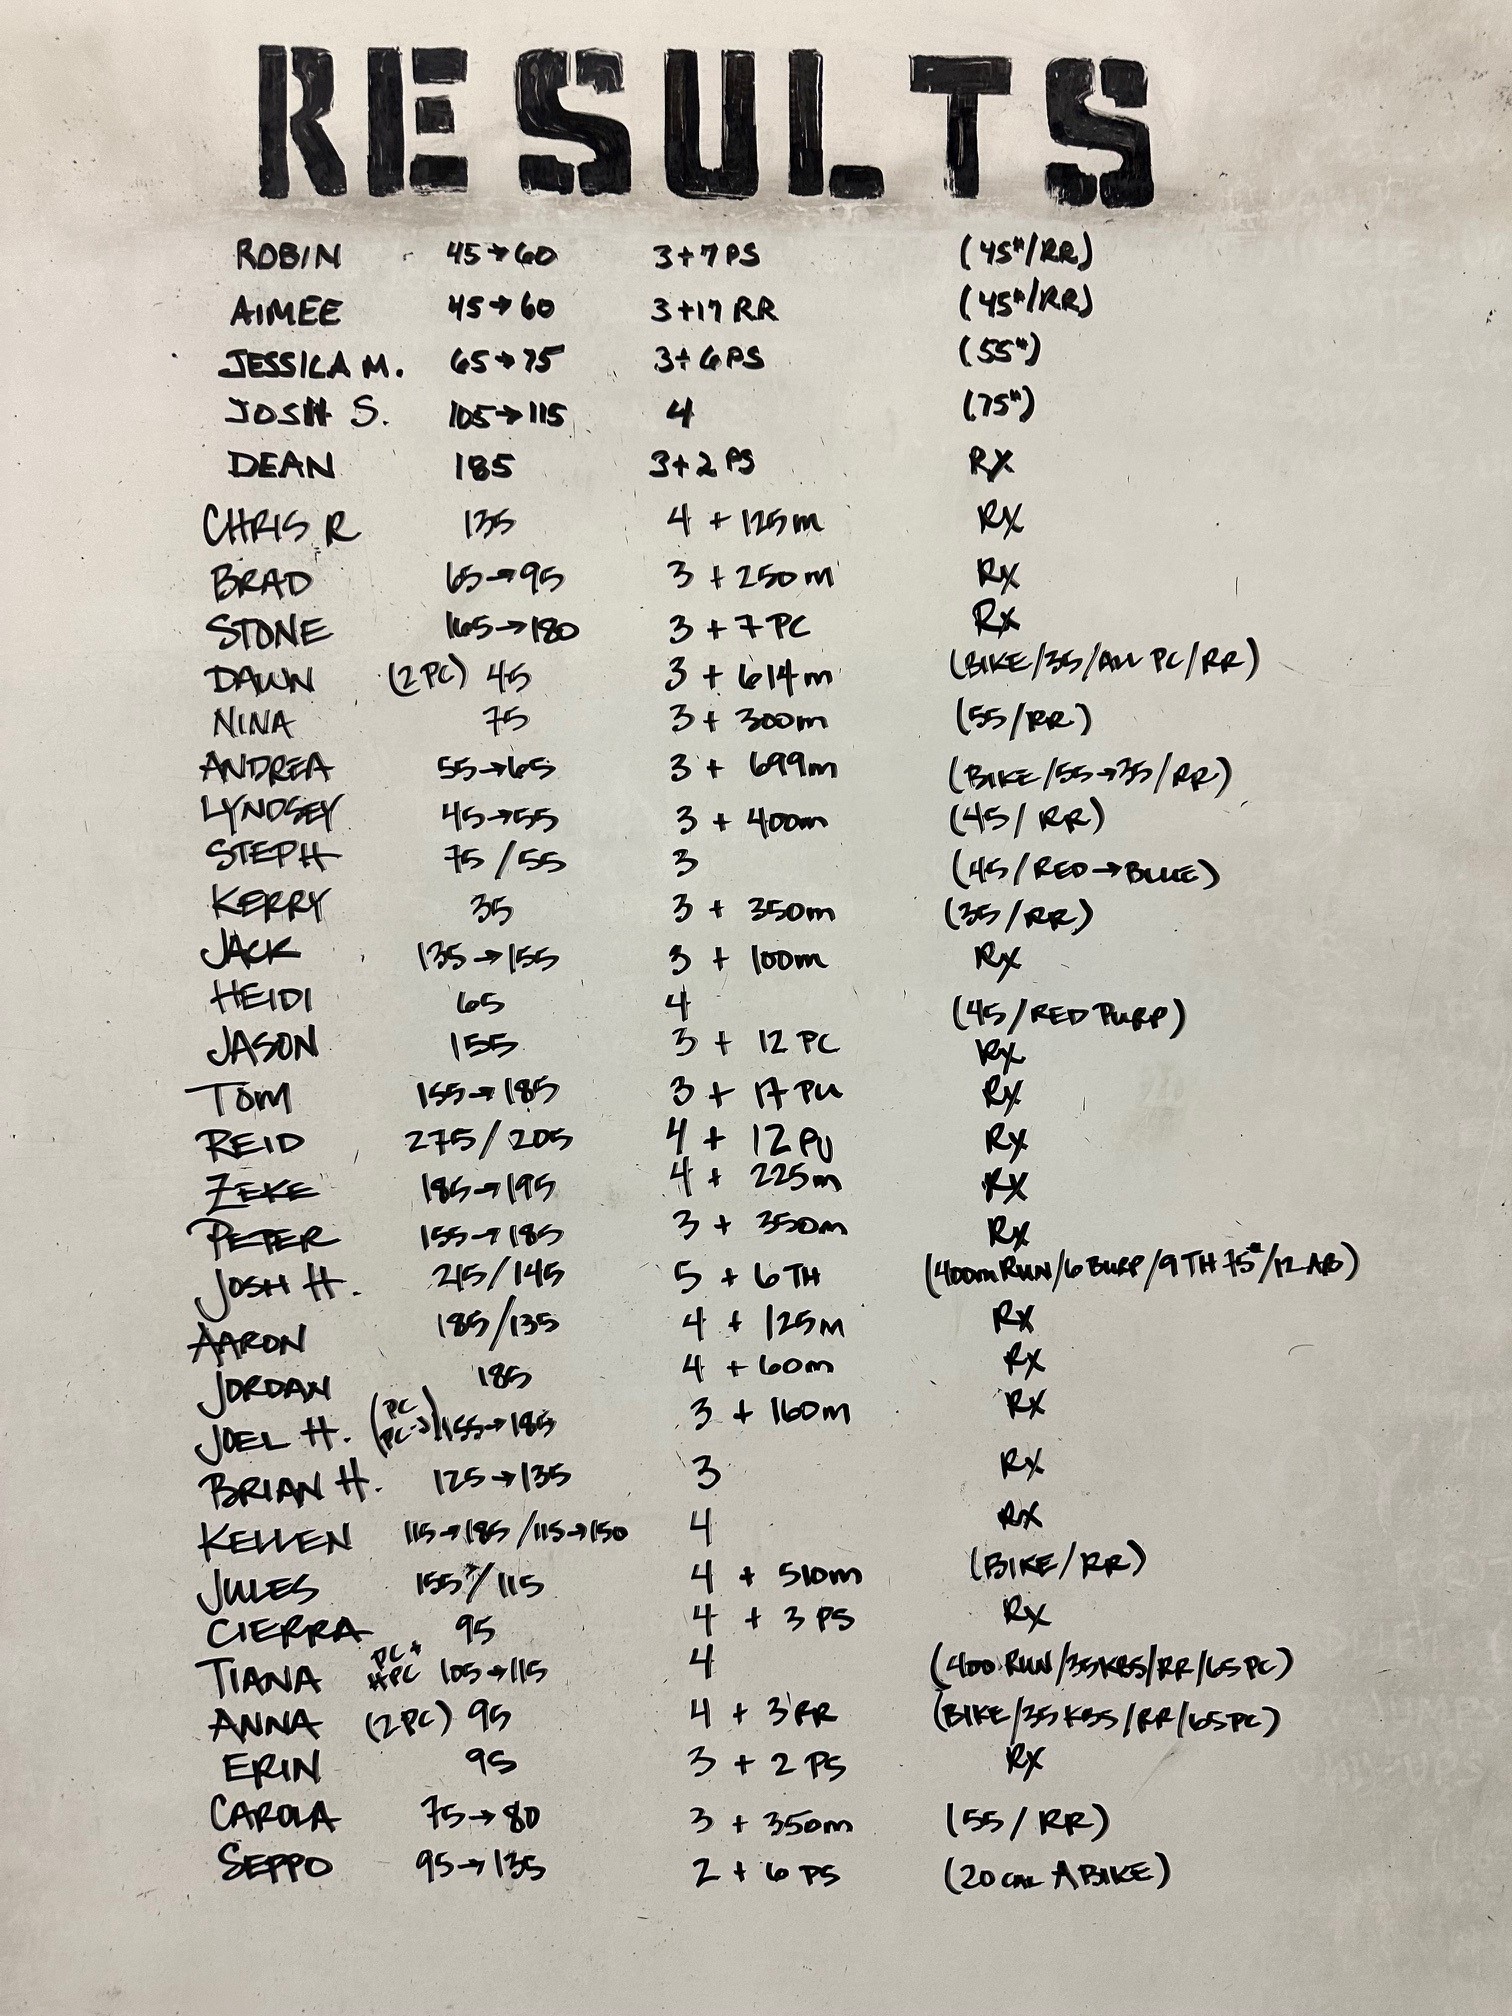 RESULTS
ROBIN 45→60 3+7 PS (45#/RR)
AIMEE 45→60 3+17 RR (45#/RR)
JESSICA M. 65→75 3+6 PS (55#)
JOSH S. 105→115 4 (75#)
DEAN 185 3+2 PS RX
CHRIS R 135 4 + 125m RX
BRAD 65→95 3 + 250m RX
STONE 165→180 3 + 7 PC RX
DAWN (2 PC) 45 3 + 614m (BIKE/35/ALL PC/RR)
NINA 75 3 + 300m (55/RR)
ANDREA 55→65 3 + 699m (BIKE/55→35/RR)
LYNDSEY 45→55 3 + 400m (45/ RR)
STEPH 75/55 3 (45/RED→BLUE)
KERRY 35 3 + 350m (35/RR)
JACK 135→155 3 + 100m RX
HEIDI 65 4 (45/RED PURP)
JASON 155 3 + 12 PC RX
TOM 155→185 3 + 17 PU RX
REID 275/205 4 + 12 PU RX
ZEKE 185→195 4 + 225m RX
PETER 155→185 3 + 350m RX
JOSH H. 215/145 5 + 6 TH (400m RUN/6 BURP/9 TH 75#/12 AB)
AARON 185/135 4 + 125m RX
JORDAN 185 4 + 60m RX
JOEL H. (PC PC→J) 155→185 3 + 160m RX
BRIAN H. 125→135 3 RX
KELLEN 115→185/115→150 4 RX
JULES 155/115 4 + 510m (BIKE/RR)
CIERRA 95 4 + 3 PS RX
TIANA PC + HPC 105→115 4 (400 RUN/35KBS/RR/65PC)
ANNA (2PC) 95 4 + 3 RR (BIKE/35 KBS/RR/65PC)
ERIN 95 3 + 2 PS RX
CAROLA 75→80 3 + 350m (55/ RR)
SEPPO 95→135 2 + 6 PS (20 CAL A BIKE)